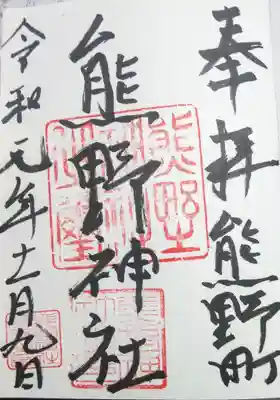 奉拝 熊野町
熊野神社
令和元年十一月九日